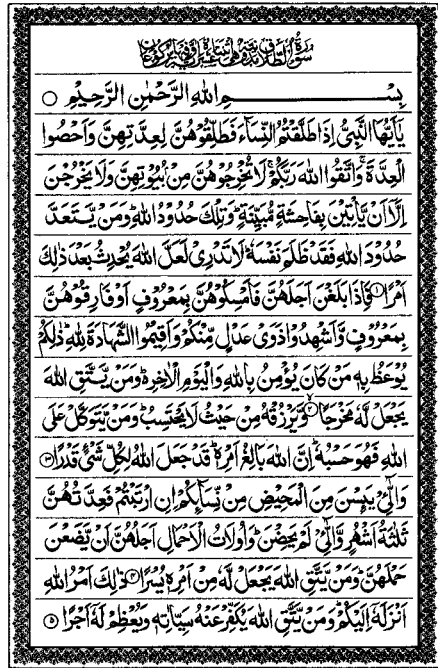 سُوْرَةُ الطَّلَاقِ مَدَنِيَّةٌ وَهِيَ اثْنَتَا عَشْرَةَ اٰيَةً وَّفِيْهَا رُكُوْعَانِ
بِسْمِ اللهِ الرَّحْمٰنِ الرَّحِيْمِ ○
يٰۤاَيُّهَا النَّبِيُّ اِذَا طَلَّقْتُمُ النِّسَآءَ فَطَلِّقُوْهُنَّ لِعِدَّتِهِنَّ وَاَحْصُوا
الْعِدَّةَ ۚ وَاتَّقُوا اللهَ رَبَّكُمْ ۚ لَا تُخْرِجُوْهُنَّ مِنْۢ بُيُوْتِهِنَّ وَلَا يَخْرُجْنَ
اِلَّاۤ اَنْ يَّاْتِيْنَ بِفَاحِشَةٍ مُّبَيِّنَةٍ ؕ وَتِلْكَ حُدُوْدُ اللهِ ؕ وَمَنْ يَّتَعَدَّ
حُدُوْدَ اللهِ فَقَدْ ظَلَمَ نَفْسَهٗ ؕ لَا تَدْرِيْ لَعَلَّ اللهَ يُحْدِثُ بَعْدَ ذٰلِكَ
اَمْرًا ① فَاِذَا بَلَغْنَ اَجَلَهُنَّ فَاَمْسِكُوْهُنَّ بِمَعْرُوْفٍ اَوْ فَارِقُوْهُنَّ
بِمَعْرُوْفٍ وَّاَشْهِدُوْا ذَوَيْ عَدْلٍ مِّنْكُمْ وَاَقِيْمُوا الشَّهَادَةَ لِلّٰهِ ؕ ذٰلِكُمْ
يُوْعَظُ بِهٖ مَنْ كَانَ يُؤْمِنُ بِاللهِ وَالْيَوْمِ الْاٰخِرِ ؕ۬ وَمَنْ يَّتَّقِ اللهَ
يَجْعَلْ لَّهٗ مَخْرَجًا ② وَّيَرْزُقْهُ مِنْ حَيْثُ لَا يَحْتَسِبُ ؕ وَمَنْ يَّتَوَكَّلْ عَلَى
اللهِ فَهُوَ حَسْبُهٗ ؕ اِنَّ اللهَ بَالِغُ اَمْرِهٖ ؕ قَدْ جَعَلَ اللهُ لِكُلِّ شَيْءٍ قَدْرًا ③
وَالّٰٓـِٔيْ يَىِٕسْنَ مِنَ الْمَحِيْضِ مِنْ نِّسَآىِٕكُمْ اِنِ ارْتَبْتُمْ فَعِدَّتُهُنَّ
ثَلٰثَةُ اَشْهُرٍ وَّالّٰٓـِٔيْ لَمْ يَحِضْنَ ؕ وَاُولَاتُ الْاَحْمَالِ اَجَلُهُنَّ اَنْ يَّضَعْنَ
حَمْلَهُنَّ ؕ وَمَنْ يَّتَّقِ اللهَ يَجْعَلْ لَّهٗ مِنْ اَمْرِهٖ يُسْرًا ④ ذٰلِكَ اَمْرُ اللهِ
اَنْزَلَهٗۤ اِلَيْكُمْ ؕ وَمَنْ يَّتَّقِ اللهَ يُكَفِّرْ عَنْهُ سَيِّاٰتِهٖ وَيُعْظِمْ لَهٗۤ اَجْرًا ⑤